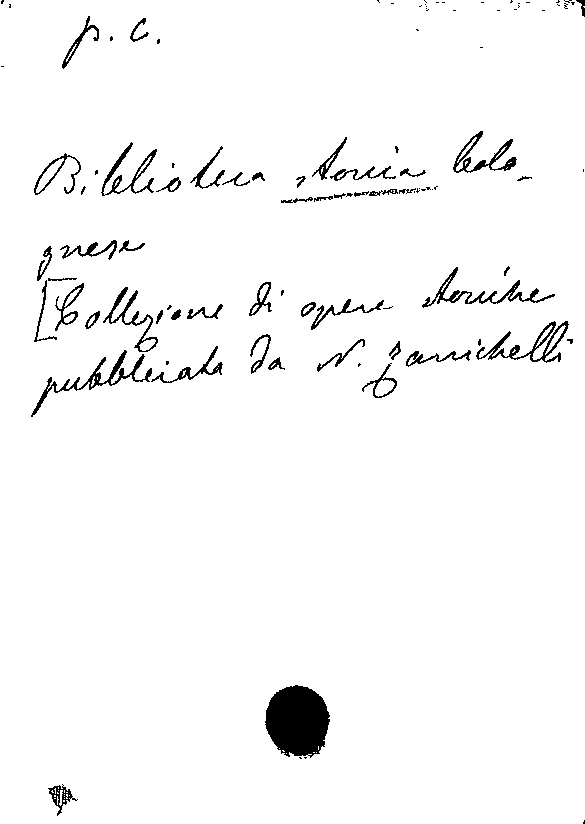 p. c.
Biblioteca storica bolo-
gnese
[Collezione di opere storiche
pubblicata da N. Zanichelli